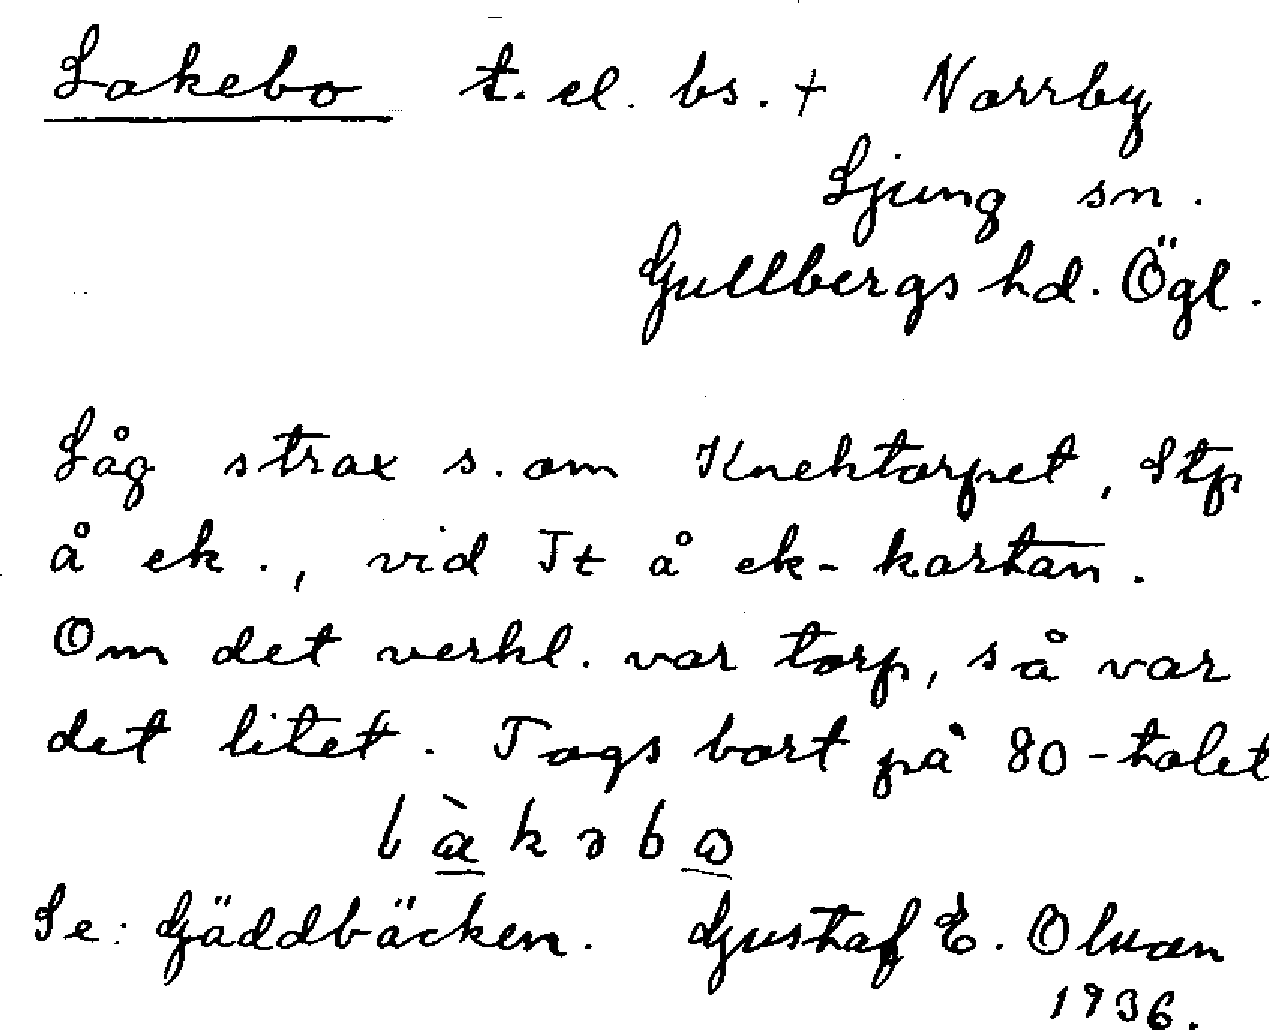 Lakebo t. el. bs. + Norrby
Ljung sn.
Gullbergs hd. Ögl.
Låg strax s. om Knektorpet, Stp
å ek., vid Tt å ek-kartan.
Om det verkl. var torp, så var
det litet. Togs bort på 80-talet
làkəbω
Se: Gäddbäcken. Gustaf E. Olson
1936.